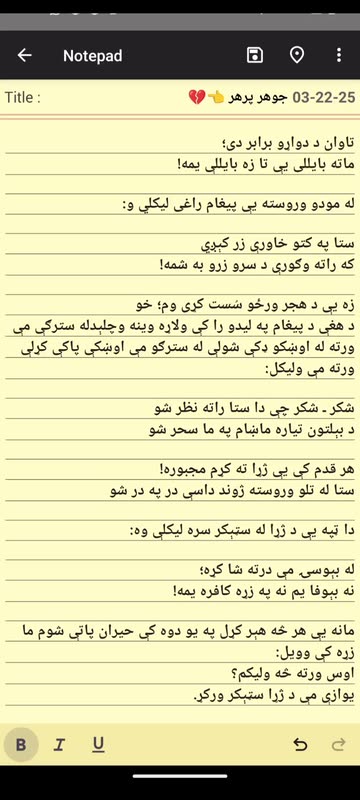 Notepad
Title : جوهر پرهر 👈💔 03-22-25
تاوان د دواړو برابر دی؛
ماته بایللی یې تا زه بایللې یمه!
له مودو وروسته یې پیغام راغی لیکلي و:
ستا په کتو خاورې زر کېږي
که راته وګورې د سرو زرو به شمه!
زه یې د هجر ورځو سُست کړی وم؛ خو
د هغې د پیغام په لیدو را کې ولاړه وینه وچلېدله سترګې مې
ورته له اوښکو ډکې شولې له سترګو مې اوښکې پاکې کړلې
ورته مې ولیکل:
شکر ـ شکر چې دا ستا راته نظر شو
د بېلتون تیاره ماښام په ما سحر شو
هر قدم کې یې ژړا ته کړم مجبوره!
ستا له تلو وروسته ژوند داسې در په در شو
دا ټپه یې د ژړا له سټېکر سره لیکلې وه:
له بېوسۍ مې درته شا کړه؛
نه بېوفا یم نه په زړه کافره یمه!
مانه یې هر څه هېر کړل په یو دوه کې حیران پاتې شوم ما
زړه کې وویل:
اوس ورته څه ولیکم؟
یوازې مې د ژړا سټېکر ورکړ.
B I U